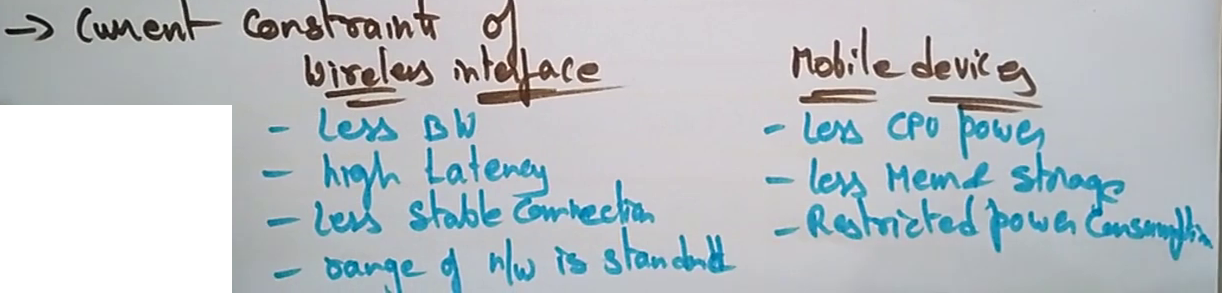 → Current Constraints of
Wireless interface
- Less BW
- high Latency
- Less Stable Connection
- range of n/w is standard
Mobile devices
- Less CPU power
- less Mem & Storage
- Restricted power Consumption